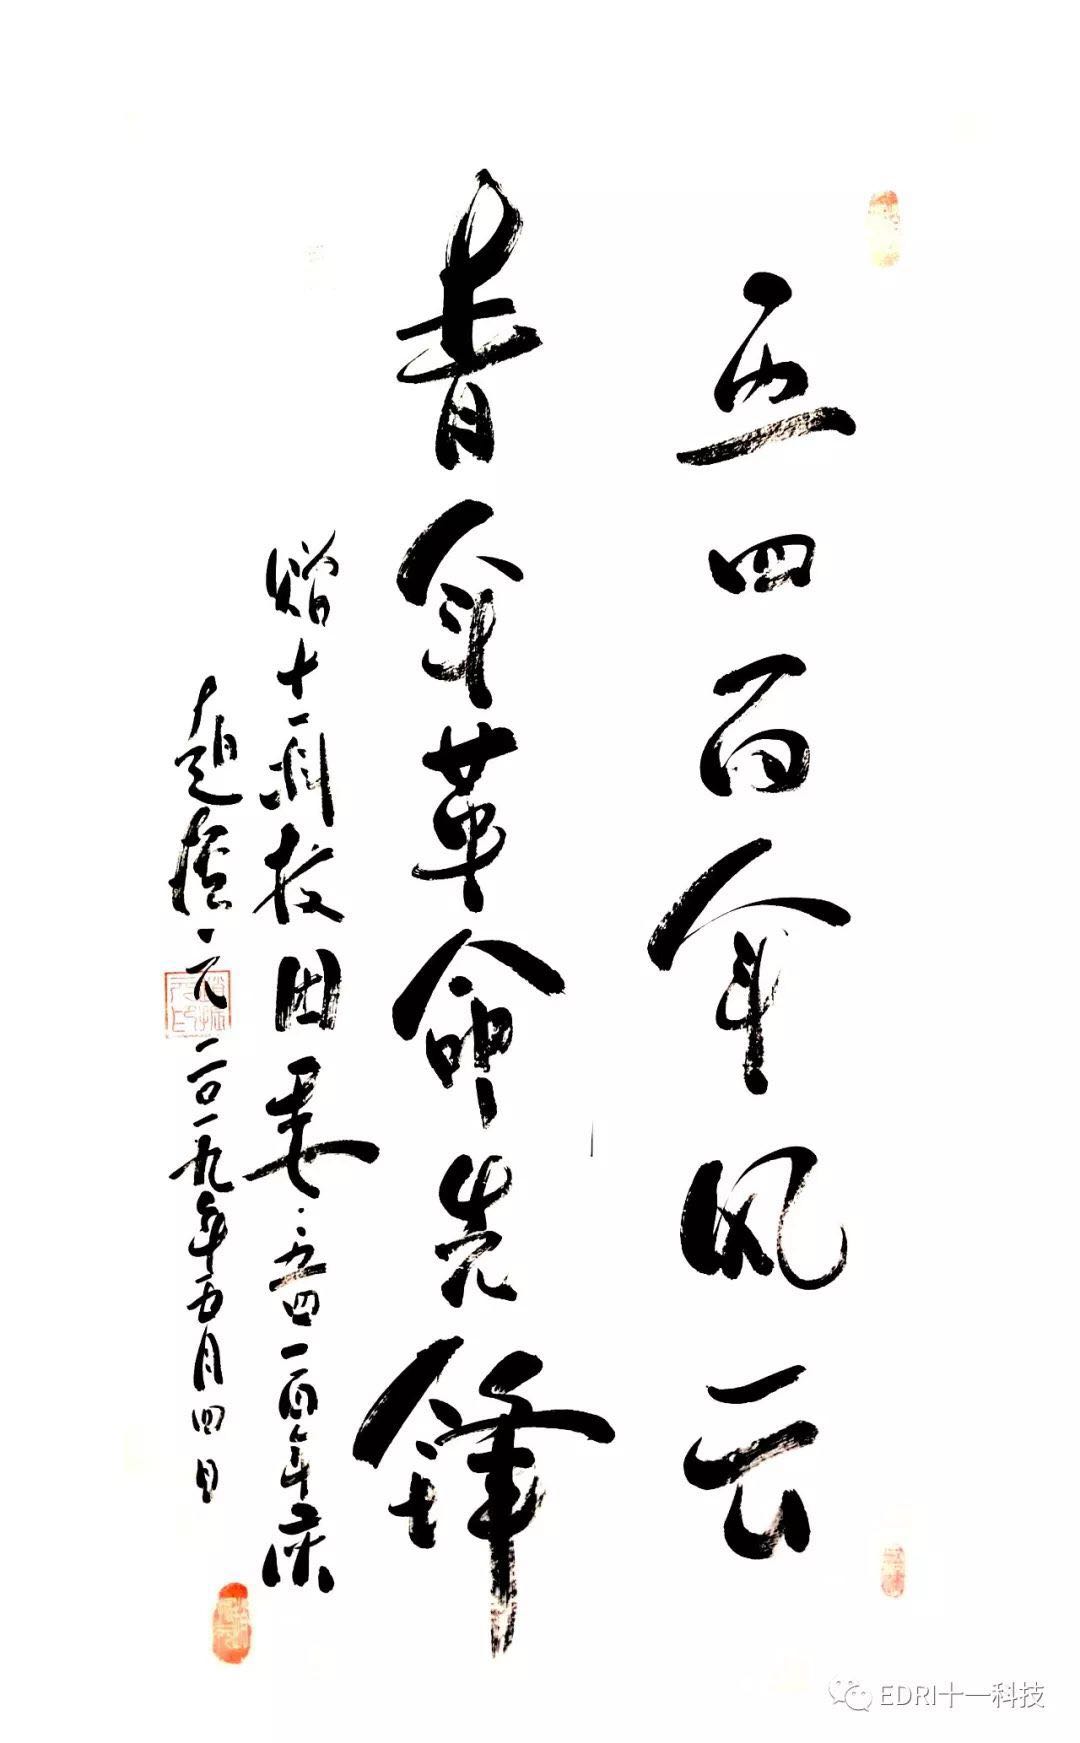 五四百年风云
青年革命先锋
赠十一科技团委：五四一百年庆
赵振元二〇一九年五月四日
EDRI十一科技